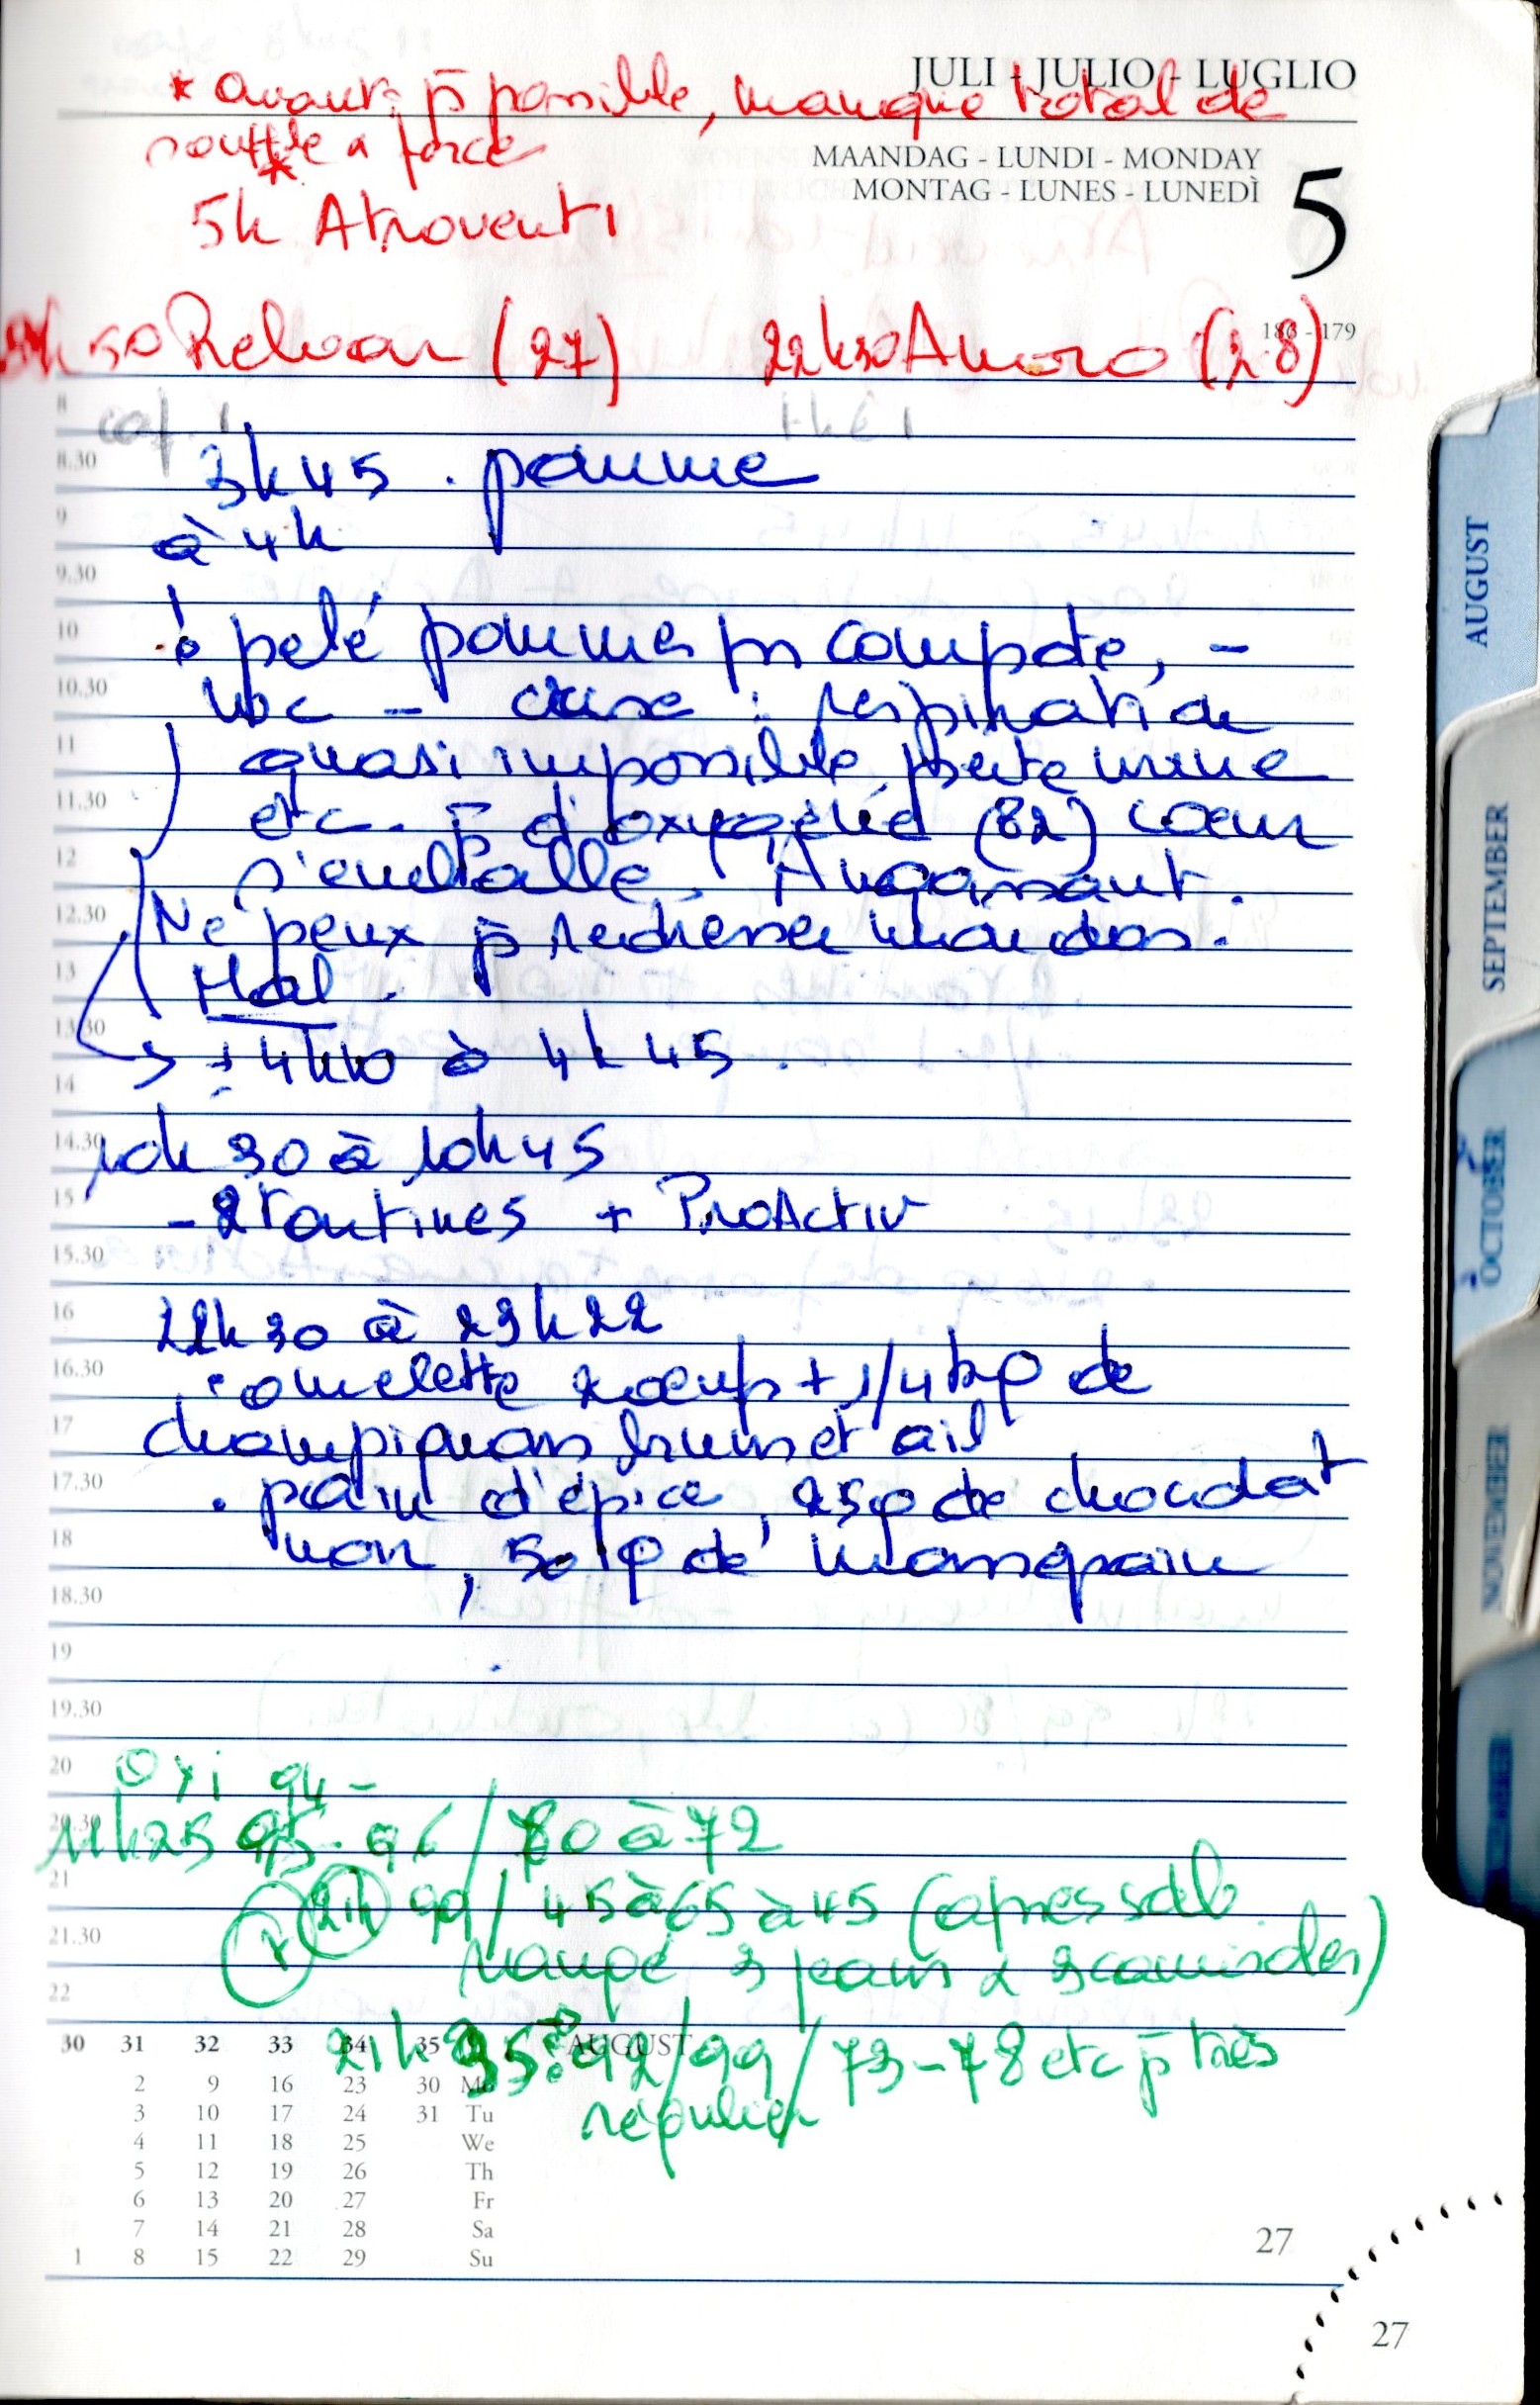 JULI - JULIO - LUGLIO
* avant: p̄ possible, manque total de
souffle a force
MAANDAG - LUNDI - MONDAY
MONTAG - LUNES - LUNEDÌ
5
5h Atrovent 1
186 - 179
50 Relvar (27) 22h30 Anoro (28)
8
caf. 1 thé 1
8.30
3h45 . pomme
9
à 4h
9.30
10
pelé pommes pr compote, -
10.30
wc - crise : respiration
11
quasi impossible, perte urine
11.30
etc. p̄ d'oxygène (82) cœur
12
s'emballe. Angoissant.
12.30
Ne peux p̄ redresser mon dos.
13
Mal.
13.30
→ ± 4h10 à 4h45.
14
14.30
10h30 à 10h45
15
- 2 tartines + ProActiv
15.30
16
22h30 à 23h22
16.30
. omelette 2 œufs + 1/4 kg de
17
champignons bruns et ail
17.30
. pain d'épice, 25g de chocolat
18
noir, 50 g de massepain
18.30
19
19.30
20
Oxi 94 -
20.30
11h25 95 - 96 / 80 à 72
21
21h 99 / 45 à 65 à 45 (après sdb
21.30
3 jeans & 3 camisoles)
22
30 31 32 33 34 35 AUGUST
21h35: 92/99 / 73-78 etc p̄ très
régulier
2 9 16 23 30 Mo
3 10 17 24 31 Tu
4 11 18 25 We
5 12 19 26 Th
6 13 20 27 Fr
7 14 21 28 Sa
1 8 15 22 29 Su
27
27
AUGUST
SEPTEMBER
OCTOBER
NOVEMBER